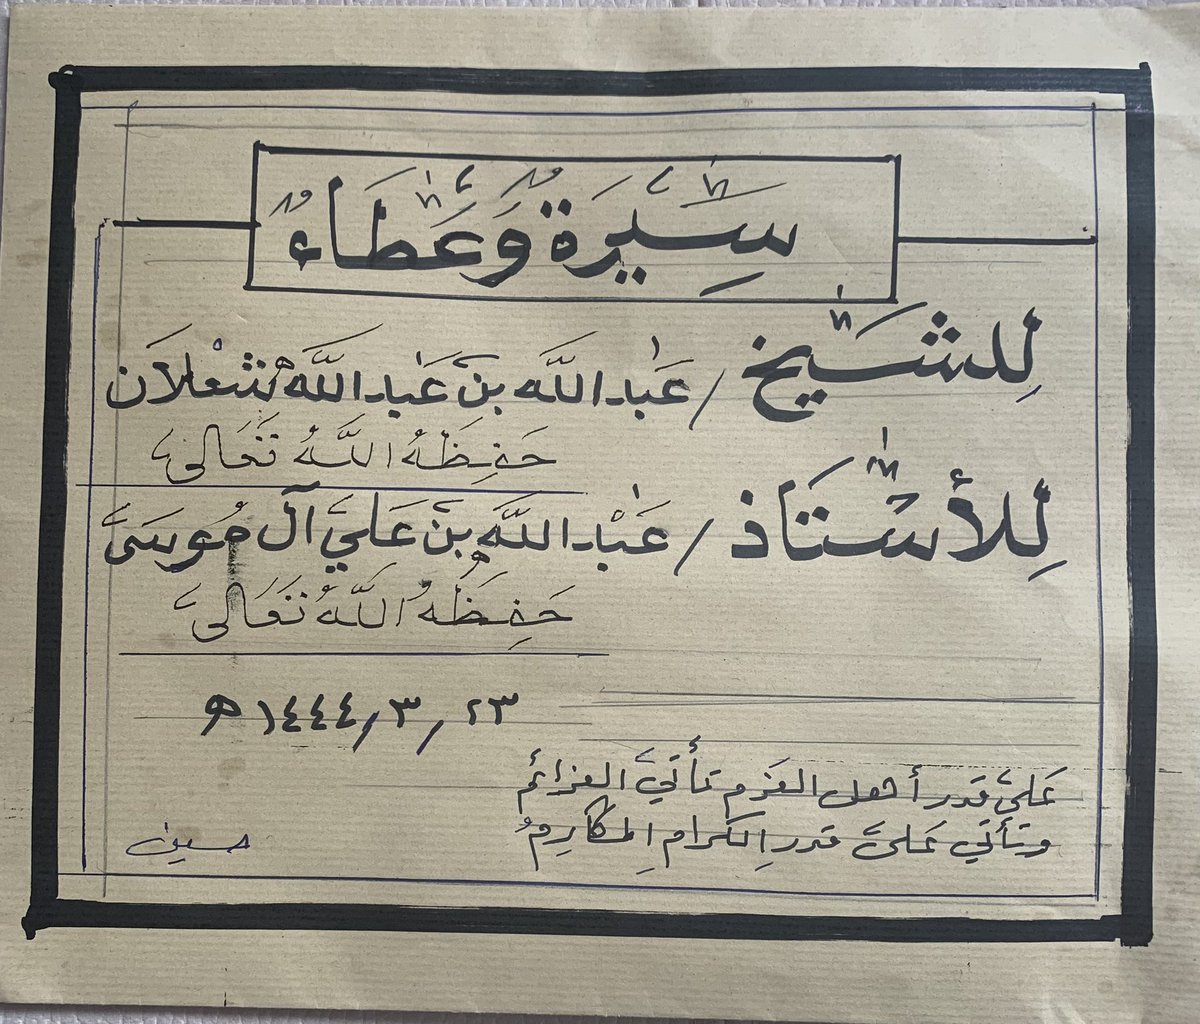 سِيرَةٌ وَعَطَاءٌ
لِلشَيخ / عَبد اللَّه بنَ عَبد اللَّه شعْلَان
حَفِظَهُ اللَّهُ تَعَالَى
لِلأُستَاذ / عَبْد اللَّه بنَ عَلي آل مُوسَى
حَفِظَهُ اللَّهُ تَعَالَى
٢٣ / ٣ / ١٤٤٤ هـ
عَلَى قدر أهل العَزم تأتي العزائمُ
وتأتي عَلَى قدرِ الكرامِ المكارِمُ
حسين